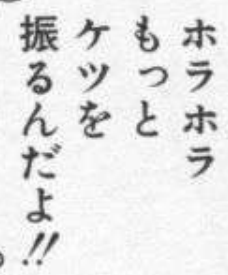 ホラホラ
もっと
ケツを
振るんだよ!!